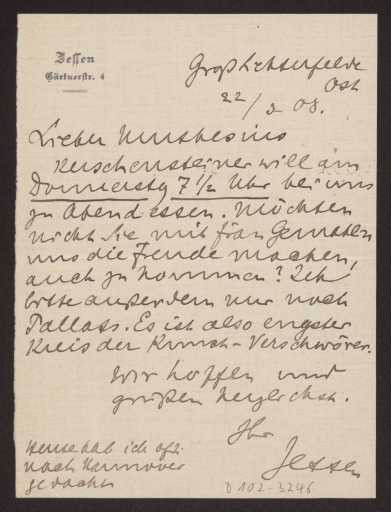 Jessen
Gärtnerstr. 4
Groß Lichterfelde
Ost
22/2 08.
Lieber Muthesius
Kerschensteiner will am
Donnerstg 7 1/2 Uhr bei uns
zu Abend essen. Möchten
nicht Sie mit frau Gemahlin
uns die Freude machen,
auch zu kommen? Ich
bitte außerdem nur noch
Pallats. Es ist also engster
Kreis der Kunst-Verschwörer.
Wir hoffen und
grüßen herzlichst.
Ihr
Jessen
Heute hab ich oft
nach Hannover
gedacht
D 102-3246